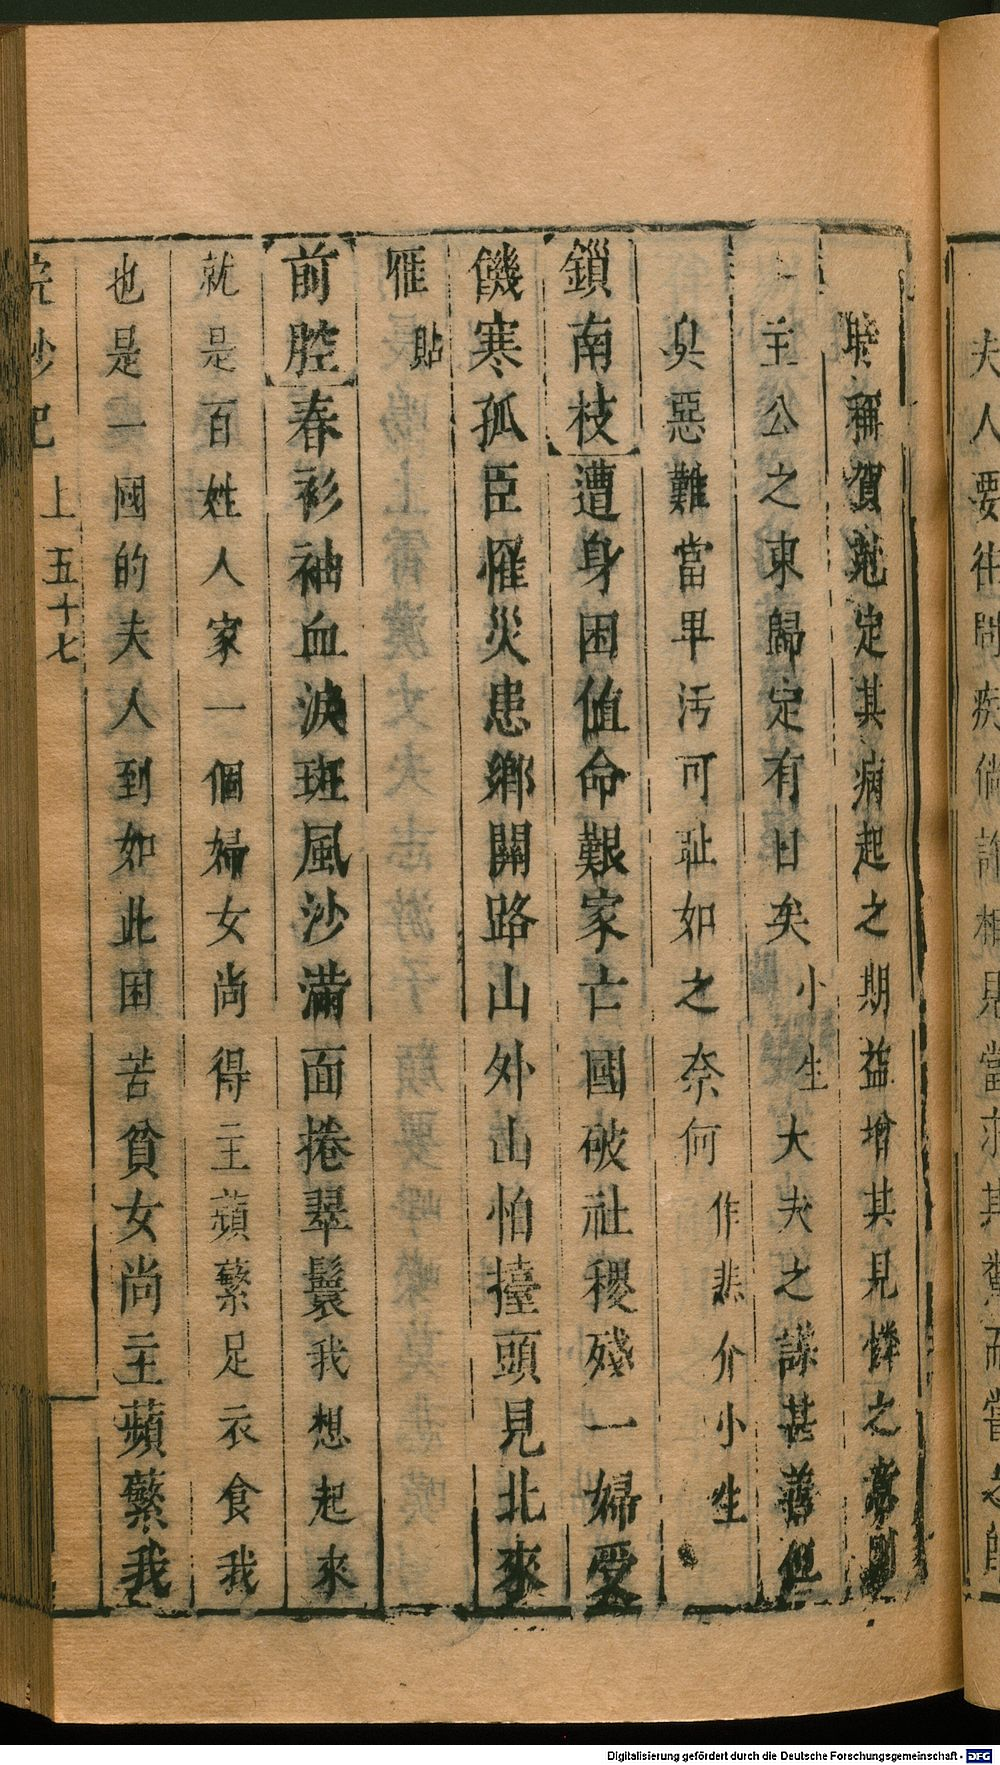 夫人要往問疾倘許相見當
聪稱賀尅定其病起之期益增其見憐之意則
主公之東歸定有日矣小生大夫之謀甚善但
臭惡難當卑汚可耻如之奈何作悲介小生
鎖南枝遭身困值命艱家亡國破社稷殘一婦受
饑寒孤臣罹災患鄉關路山外山怕擡頭見北來
雁貼
前腔春衫袖血淚斑風沙滿面捲翠鬟我想起來
就是百姓人家一個婦女尚得主蘋蘩足衣食我
也是一國的夫人到如此困苦貧女尚主蘋蘩我
浣紗記 上 五十七
Digitalisierung gefördert durch die Deutsche Forschungsgemeinschaft - DFG